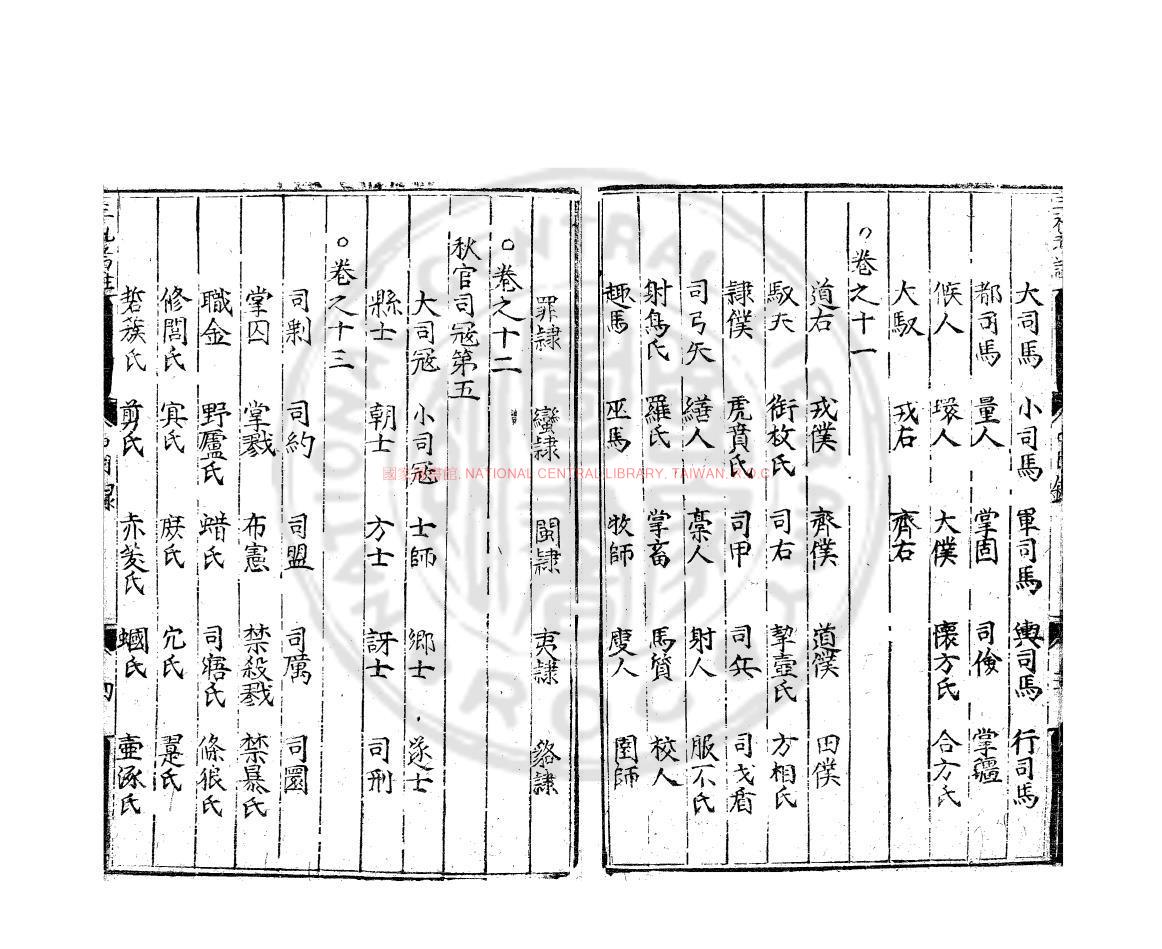 大司馬 小司馬 軍司馬 輿司馬 行司馬
都司馬 量人 掌固 司儉 掌疆
候人 環人 大僕 懷方氏 合方氏
大馭 戎右 齊右
○卷之十一
道右 戎僕 齊僕 道僕 田僕
馭夫 銜枚氏 司右 挈壺氏 方相氏
隸僕 虎賁氏 司甲 司兵 司戈盾
司弓矢 繕人 槀人 射人 服不氏
射鳥氏 羅氏 掌畜 馬質 校人
趣馬 巫馬 牧師 廋人 圉師
罪隸 蠻隸 閩隸 夷隸 貉隸
○卷之十二
秋官司冦第五
大司冦 小司冦 士師 鄉士 遂士
縣士 朝士 方士 訝士 司刑
○卷之十三
司剌 司約 司盟 司厲 司圜
掌囚 掌戮 布憲 禁殺戮 禁暴氏
職金 野廬氏 蜡氏 司寤氏 條狼氏
修閭氏 冥氏 庶氏 穴氏 翨氏
硩蔟氏 翦氏 赤犮氏 蟈氏 壷涿氏
國家圖書館, NATIONAL CENTRAL LIBRARY, TAIWAN, R.O.C